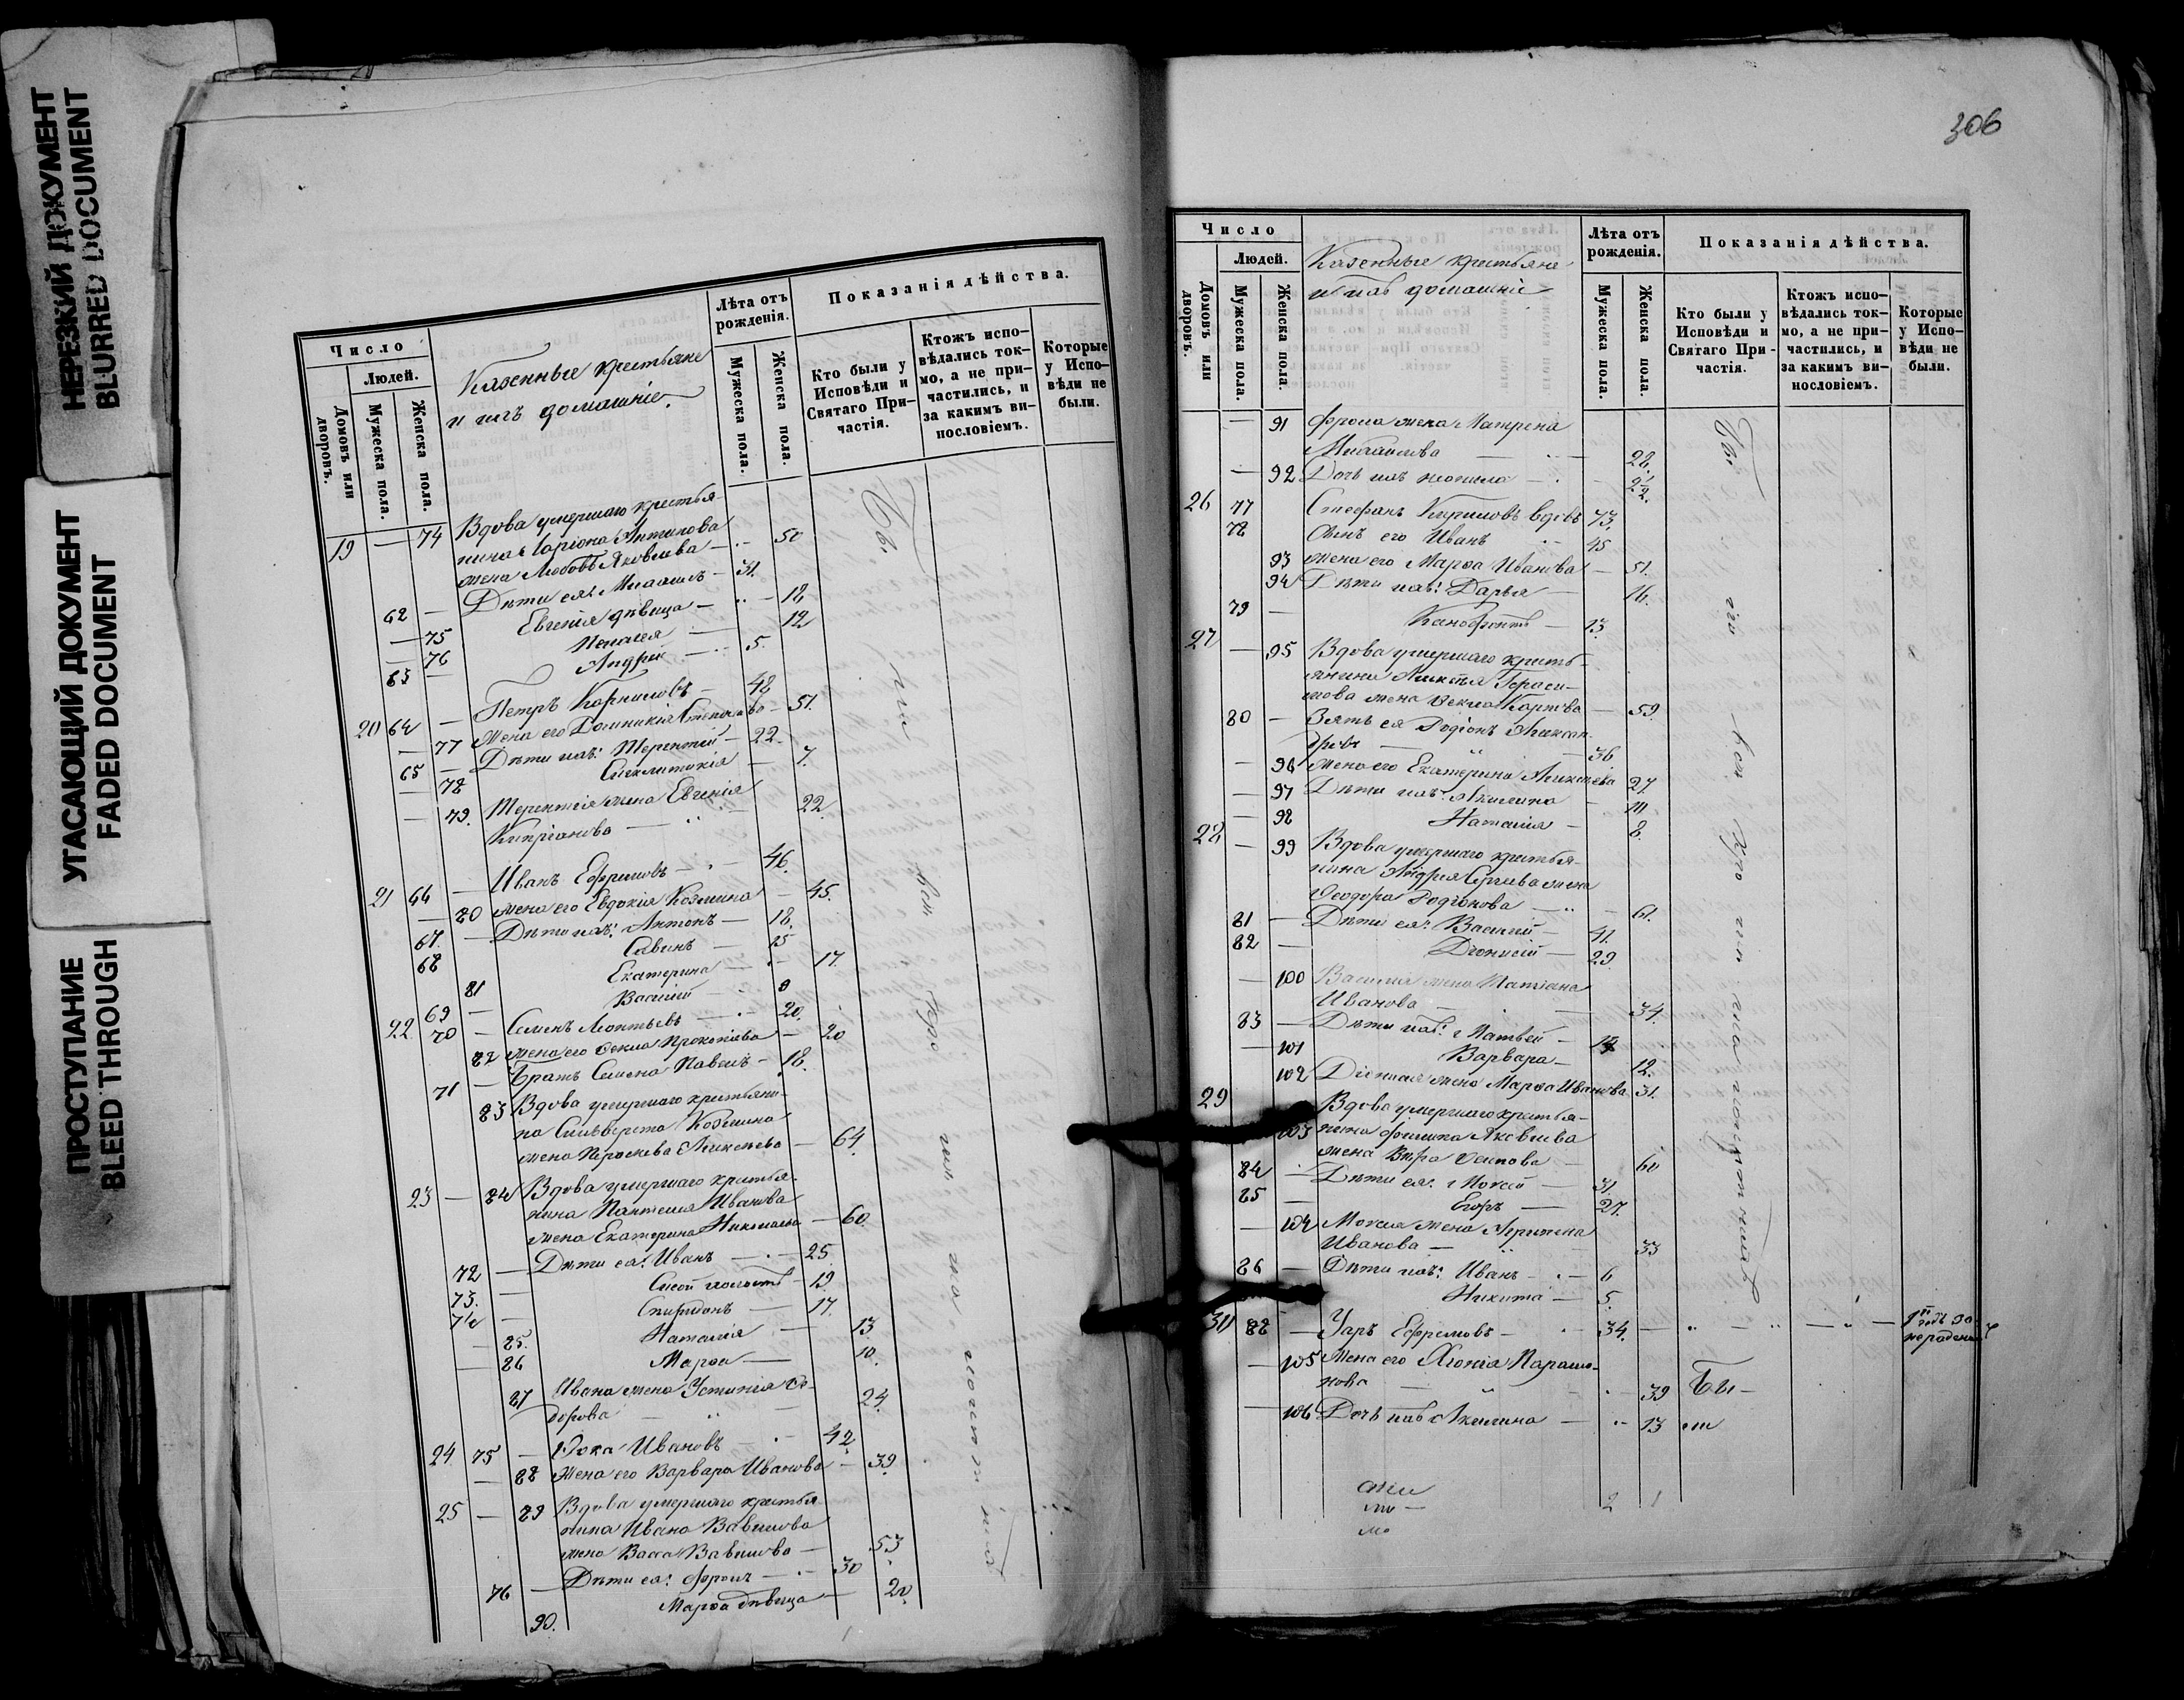 НЕРЕЗКИЙ ДОКУМЕНТ
BLURRED DOCUMENT
УГАСАЮЩИЙ ДОКУМЕНТ
FADED DOCUMENT
ПРОСТУПАНИЕ
BLEED THROUGH
Число
Людей.
Домовъ или дворовъ.
Мужеска пола.
Женска пола.
Казенные крестьяне
и ихъ домашніе.
Лѣта отъ рожденія.
Мужеска пола.
Женска пола.
Показанія дѣйства.
Кто были у Исповѣди и Святаго При-частія.
Ктожъ испо-вѣдались ток-мо, а не при-частились, и за какимъ ви-нословіемъ.
Которые у Испо-вѣди не были.
19 — 74 Вдова умершаго крестья-
нина Иларіона Антипова
жена Любовь Яковлева — 50
62 — Дѣти ея: Михаилъ — 31.
— 75 Евгенія дѣвица — 18.
— 76 Пелагея — 12
63 — Андрей — 5.
20 64 — Петръ Корниловъ — 48
— 77 Жена его — 51.
65 — Дѣти ихъ: Терентій — 22.
— 78 Синклитикія — 7.
— 79. Терентія жена Евгенія
Кипріанова — 22.
21 66 — Иванъ Ефремовъ — 46.
— 80 жена его Евдокія Козмина — 45.
67. — Дѣти ихъ: Антонъ — 18.
68 Савинъ — 15
81 Екатерина — 17.
69 — Василій — 8
22 70 — Семенъ Леонтьевъ — 20.
82 жена его Ѳекла Прокопіева — 20
71 — Братъ Семена Павелъ — 18.
83 Вдова умершаго крестьяни-
на Сильверста Козмина
жена Параскева Алексѣева — 64.
23 — 84 Вдова умершаго крестья-
нина Пантелея Иванова
жена Екатерина Николаева — 60
72 — Дѣти ея: Иванъ — 25.
73. — — 19
74 — Спиридонъ — 17.
— 85. Наталія — 13
— 86 Марѳа — 10.
87 Ивана жена Устинія Ѳе-
дорова — 24.
24 75 — Ивановъ — 42
— 88 Жена его Варвара Иванова — 39.
25 — 89 Вдова умершаго крестья-
нина Ивана Вавилова
жена Васса Вавилова — 53
76 — Дѣти ея: Фролъ — 30
90. Марѳа дѣвица — 20.
306
Число
Людей.
Домовъ или дворовъ.
Мужеска пола.
Женска пола.
Казенные крестьяне
и ихъ домашніе
Лѣта отъ рожденія.
Мужеска пола.
Женска пола.
Показанія дѣйства.
Кто были у Исповѣди и Святаго При-частія.
Ктожъ испо-вѣдались ток-мо, а не при-частились, и за какимъ ви-нословіемъ.
Которые у Испо-вѣди не были.
— 91 Фрола жена Матрена
Михайлова — 28.
— 92 Дочь ихъ — 2½.
26 77 Стефанъ Кириловъ вдовъ 73.
78 Сынъ его Иванъ 45
93 жена его Марѳа Иванова — 51.
94 Дѣти ихъ: Дарья — 16.
79 — Ксенофонтъ — 13.
27 — 95 Вдова умершаго кресть-
янина Алексѣя Гераси-
мова жена Ѳекла Карпова — 59.
80 — Зять ея Родіонъ Алексан-
дровъ — 36
— 96 Жена его Екатерина Алексѣева 27.
— 97 Дѣти ихъ: Акилина — 10
— 98 Наталія — 8.
28 — 99 Вдова умершаго крестья-
нина Андрея Сергѣева жена
Ѳеодора Родіонова — 61.
81 — Дѣти ея: Василій — 41.
82 — Діонисій — 29.
— 100 Василія жена Татіана
Иванова — 34.
83 — Дѣти ихъ: Матвей —
— 101 Варвара — 12.
102 Діонисія жена Марѳа Иванова 31.
29 103 Вдова умершаго крестья-
нина Филипа Яковлева
жена Вѣра Осипова — 60
84 — Дѣти ея: Мокей — 31.
85 — Егоръ — 27.
— 104 Мокея жена Агрипена
Иванова — 33
86 — Дѣти ихъ: Иванъ — 6
Никита — 5.
30 88 — Уаръ Ефремовъ — 34. — 1й годъ по нераденію
— 105 Жена его Парамо-
нова — 39 Бы-
— 106 Дочь ихъ Акилина — 13 ли
2 1